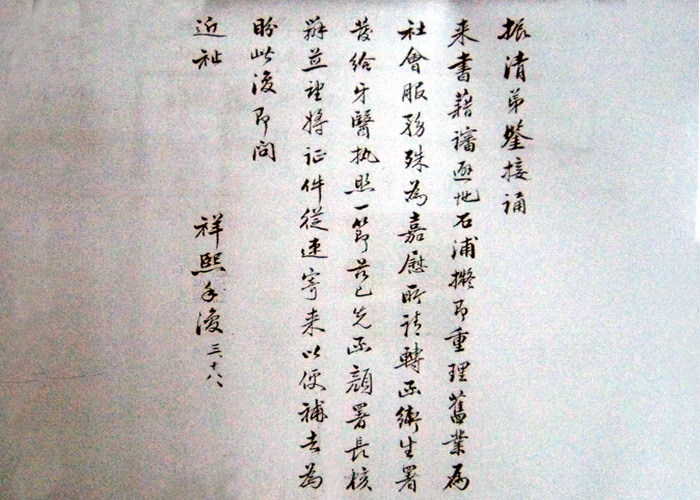 振清弟鑒接誦
来書藉諳避地石浦擬即重理舊業為
社會服務殊為嘉慰所請轉函衛生署
發給牙醫执照一節茲已先函顏署長核
辦並望將证件從速寄来以便補去為
盼此復即問
近祉
祥熙手復 三、十八、